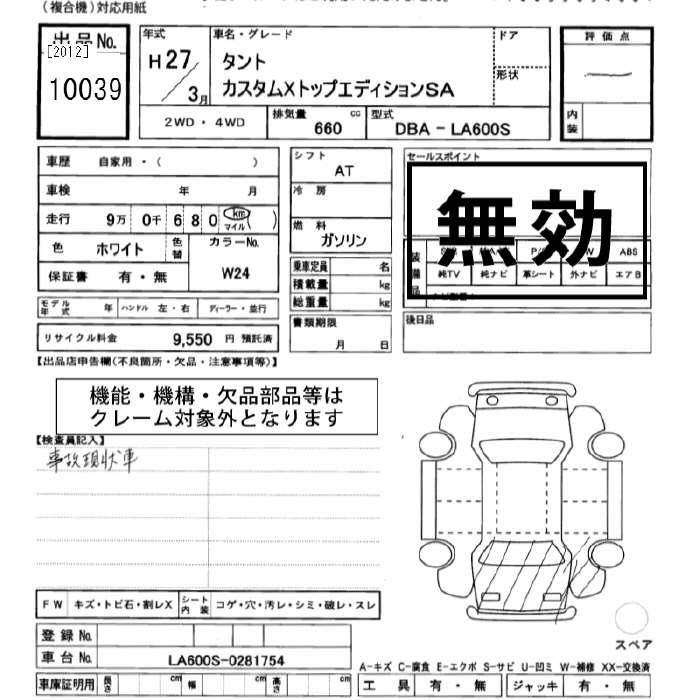 (複合機)対応用紙
出品No.
[2012]
10039
年式
H27/3月
車名・グレード
タント
カスタムXトップエディションSA
ドア
形状
評価点
内装
2WD・4WD
排気量 660 cc
型式 DBA-LA600S
車歴 自家用・( )
車検 年 月
走行 9万 0千 6 8 0 (km マイル)
色 ホワイト 色替
カラーNo. W24
保証書 有・無
モデル年式 年 ハンドル 左・右 ディーラー・並行
リサイクル料金 9,550 円 預託済
シフト AT
冷房
燃料 ガソリン
乗車定員 名
積載量 kg
総重量 kg
書類期限
月 日
セールスポイント
無効
装備品
ABS
純TV 純ナビ 革シート 外ナビ エアB
後日品
【出品店申告欄(不良箇所・欠品・注意事項等)】
機能・機構・欠品部品等は
クレーム対象外となります
【検査員記入】
事故現状車
FW キズ・トビ石・割レX シート内装 コゲ・穴・汚レ・シミ・破レ・スレ
登録No.
車台No. LA600S-0281754
車庫証明用 長さ cm 幅 cm 高さ cm
スペア
A-キズ C-腐食 E-エクボ S-サビ U-凹ミ W-補修 XX-交換済
工具 有・無 ジャッキ 有・無